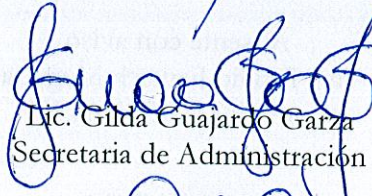 Lic. Gilda Guajardo Garza
Secretaria de Administración